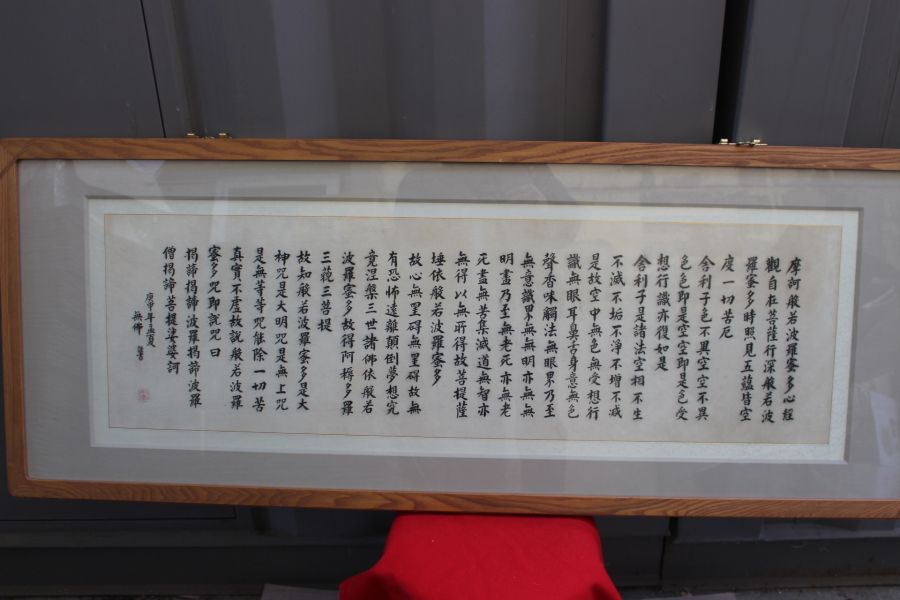 摩訶般若波羅蜜多心經
觀自在菩薩行深般若波
羅蜜多時照見五蘊皆空
度一切苦厄
舍利子色不異空空不異
色色即是空空即是色受
想行識亦復如是
舍利子是諸法空相不生
不滅不垢不淨不增不減
是故空中無色無受想行
識無眼耳鼻舌身意無色
聲香味觸法無眼界乃至
無意識界無無明亦無無
明盡乃至無老死亦無老
死盡無苦集滅道無智亦
無得以無所得故菩提薩
埵依般若波羅蜜多
故心無罣碍無罣碍故無
有恐怖遠離顛倒夢想究
竟涅槃三世諸佛依般若
波羅蜜多故得阿耨多羅
三藐三菩提
故知般若波羅蜜多是大
神咒是大明咒是無上咒
是無等等咒能除一切苦
真實不虛故說般若波羅
蜜多咒即說咒曰
揭諦揭諦波羅揭諦波羅
僧揭諦菩提娑婆訶
庚申年孟夏
無佛